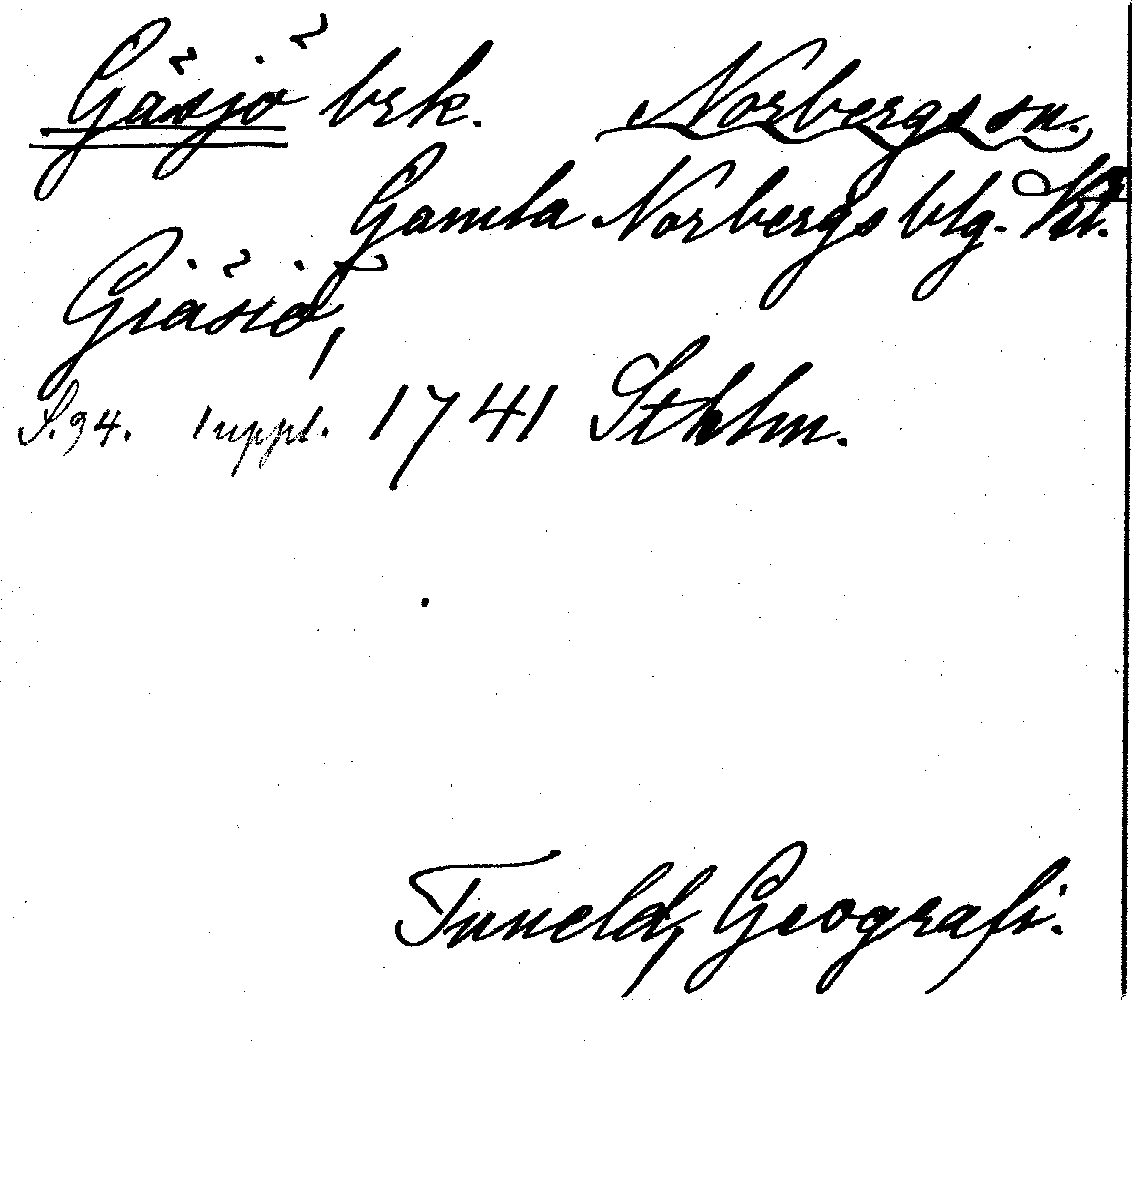 Gäsjö brk. Norbergs sn.
Gamla Norbergs blg.
Giäsiö,
S. 94. suppl. 1741 Sthlm.
Tuneld, Geografi.